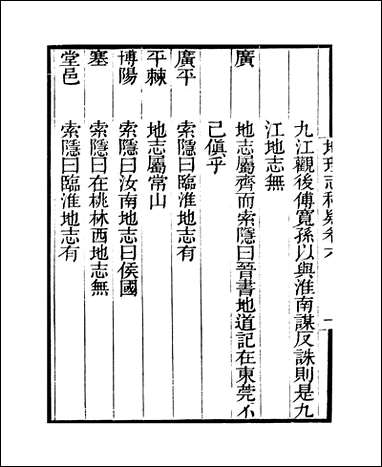 地理志稽疑卷六　一
九江觀後傅寬孫以與淮南謀反誅則是九
江地志無
廣　地志屬齊而索隱曰晉書地道記在東莞不
已傎乎
廣平　索隱曰臨淮地志有
平棘　地志屬常山
博陽　索隱曰汝南地志曰侯國
塞　索隱曰在桃林西地志無
堂邑　索隱曰臨淮地志有